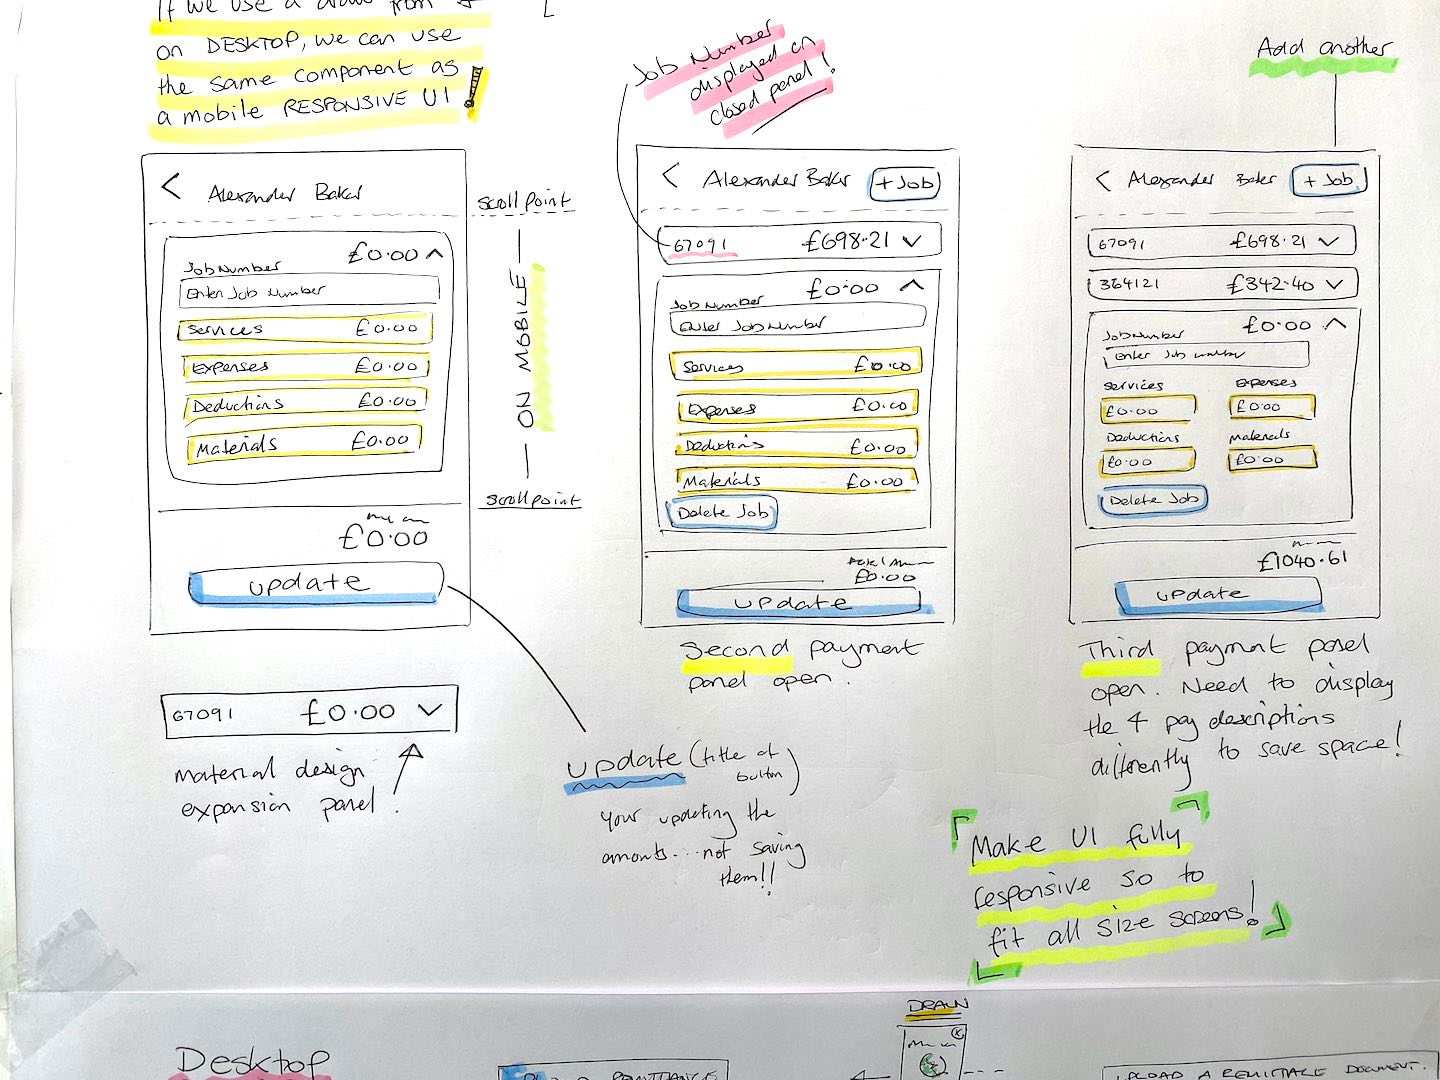 If we use a draw from
on DESKTOP, we can use
the same component as
a mobile RESPONSIVE UI !
Job Number
displayed on
closed panel!
Add another
< Alexander Baker
£0.00
Job Number
Enter Job Number
Services £0.00
Expenses £0.00
Deductions £0.00
Materials £0.00
£0.00
update
scroll point
ON MOBILE
scroll point
< Alexander Baker + Job
67091 £698.21
£0.00
Job Number
Enter Job Number
Services £0.00
Expenses £0.00
Deductions £0.00
Materials £0.00
Delete Job
£0.00
update
Second payment
panel open.
< Alexander Baker + Job
67091 £698.21
364121 £342.40
£0.00
Job Number
Enter Job number
Services Expenses
£0.00 £0.00
Deductions Materials
£0.00 £0.00
Delete Job
£1040.61
update
Third payment panel
open. Need to display
the 4 pay descriptions
differently to save space!
67091 £0.00
material design
expansion panel.
update (title of
button)
Your updating the
amounts... not saving
them!!
Make UI fully
responsive so to
fit all size screens!
Desktop
REMITTANCE
DRAW
UPLOAD A REMITTANCE DOCUMENT.